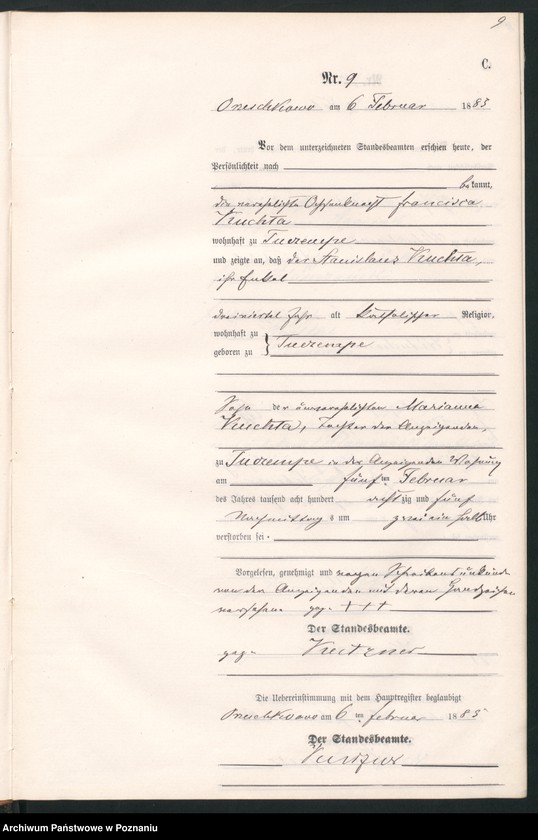 9
C.
Nr. 9
Orzeschkowo am 6 Februar 1885
Vor dem unterzeichneten Standesbeamten erschien heute, der
Persönlichkeit nach
bekannt,
die verehelichte Ochsenknecht Francisca
Kuchta
wohnhaft zu
und zeigte an, daß der Stanislaus Kuchta,
ihr Enkel
dreiviertel Jahr alt katholischer Religion,
wohnhaft zu
geboren zu
Sohn der unverehelichten Marianna
Kuchta, Tochter der Anzeigenden,
zu in der Anzeigenden Wohnung
am fünften Februar
des Jahres tausend acht hundert achtzig und fünf
Nachmittags um zwei ein halb Uhr
verstorben sei.
Vorgelesen, genehmigt und wegen Schreibensunkunde
von der Anzeigenden mit deren Handzeichen
versehen. gez. + + +
Der Standesbeamte.
gez.
Die Uebereinstimmung mit dem Hauptregister beglaubigt
Orzeschkowo am 6 ten Februar 1885
Der Standesbeamte.
Archiwum Państwowe w Poznaniu